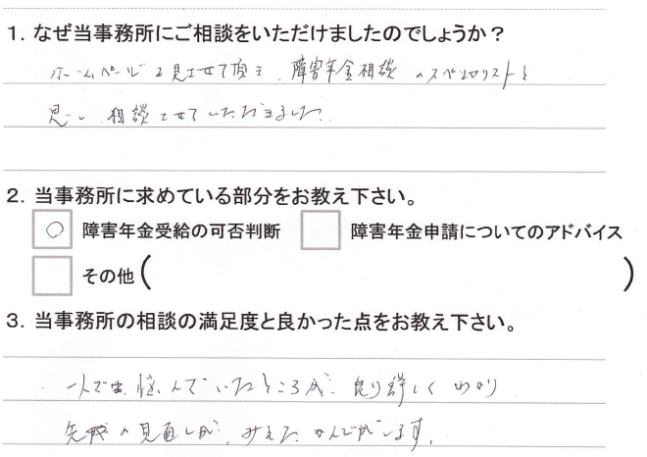 1. なぜ当事務所にご相談をいただけましたのでしょうか？
ホームページを見させて頂き 障害年金相談のスペシャリストと
思い 相談させていただきました。
2. 当事務所に求めている部分をお教え下さい。
○ 障害年金受給の可否判断 障害年金申請についてのアドバイス
その他（ ）
3. 当事務所の相談の満足度と良かった点をお教え下さい。
一人では、悩んでいたところが、より詳しくわかり
先の見直しが、みえたかんじがします。